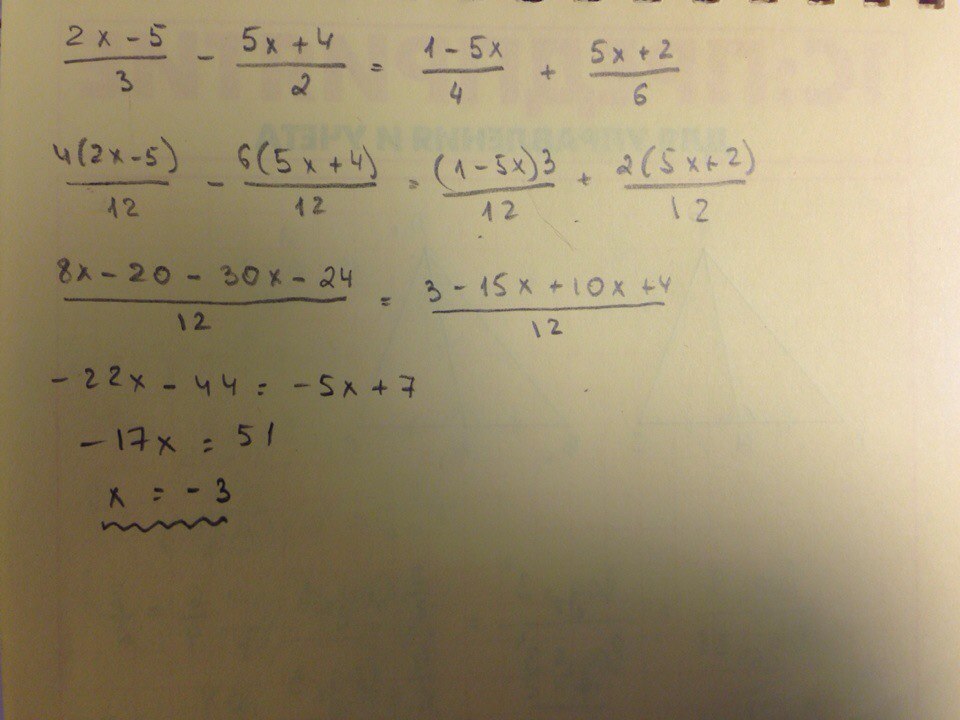 (2x-5)/3 - (5x+4)/2 = (1-5x)/4 + (5x+2)/6
4(2x-5)/12 - 6(5x+4)/12 = (1-5x)3/12 + 2(5x+2)/12
(8x-20-30x-24)/12 = (3-15x+10x+4)/12
-22x-44=-5x+7
-17x=51
x=-3